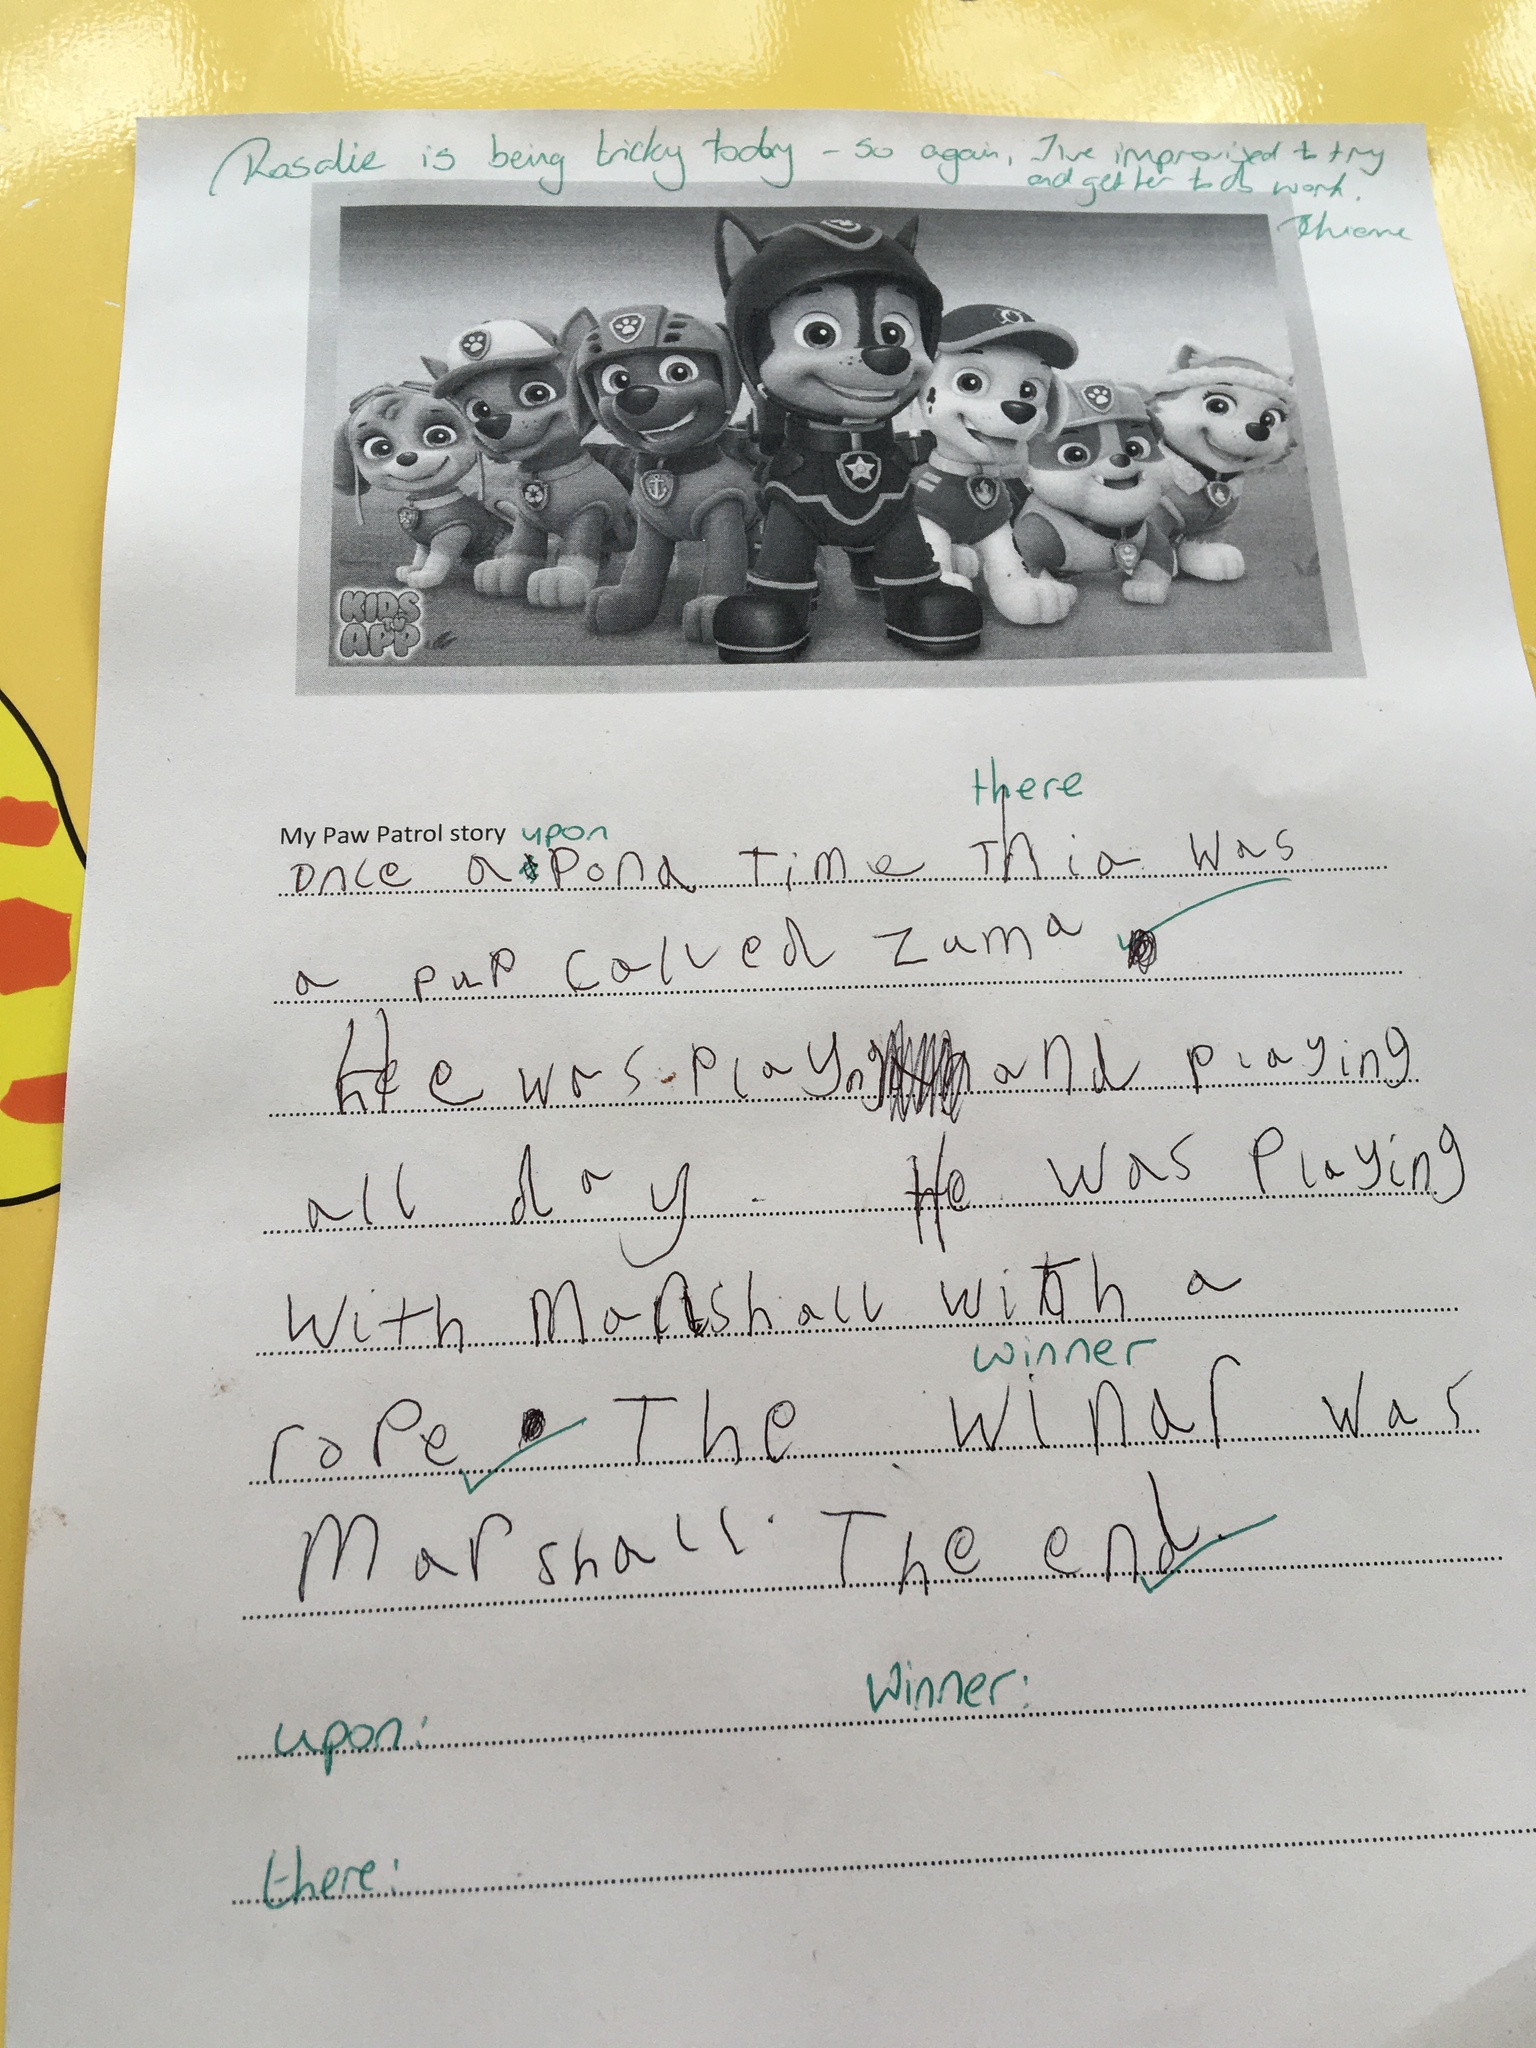 Rosalie is being tricky today - so again, I've improvised to try
and get her to do work.
KIDS
TV
APP
there
My Paw Patrol story upon
once a Pond Time Thia was
a pup called Zuma
Hee was playng and playing
all day. He was Playing
With Marshall with a
winner
rope The winar was
Marshall. The end.
winner:
upon:
there: